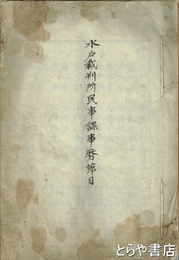 水戸裁判所民事課事務節目
とらや書店